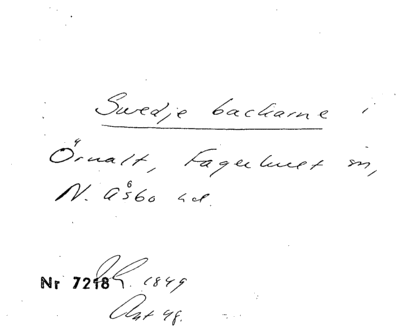 Swedjebackarne i
Örnalt, Fagerhult sn,
N. Åsbo hd.
Nr 7218 1849
Ant 48.